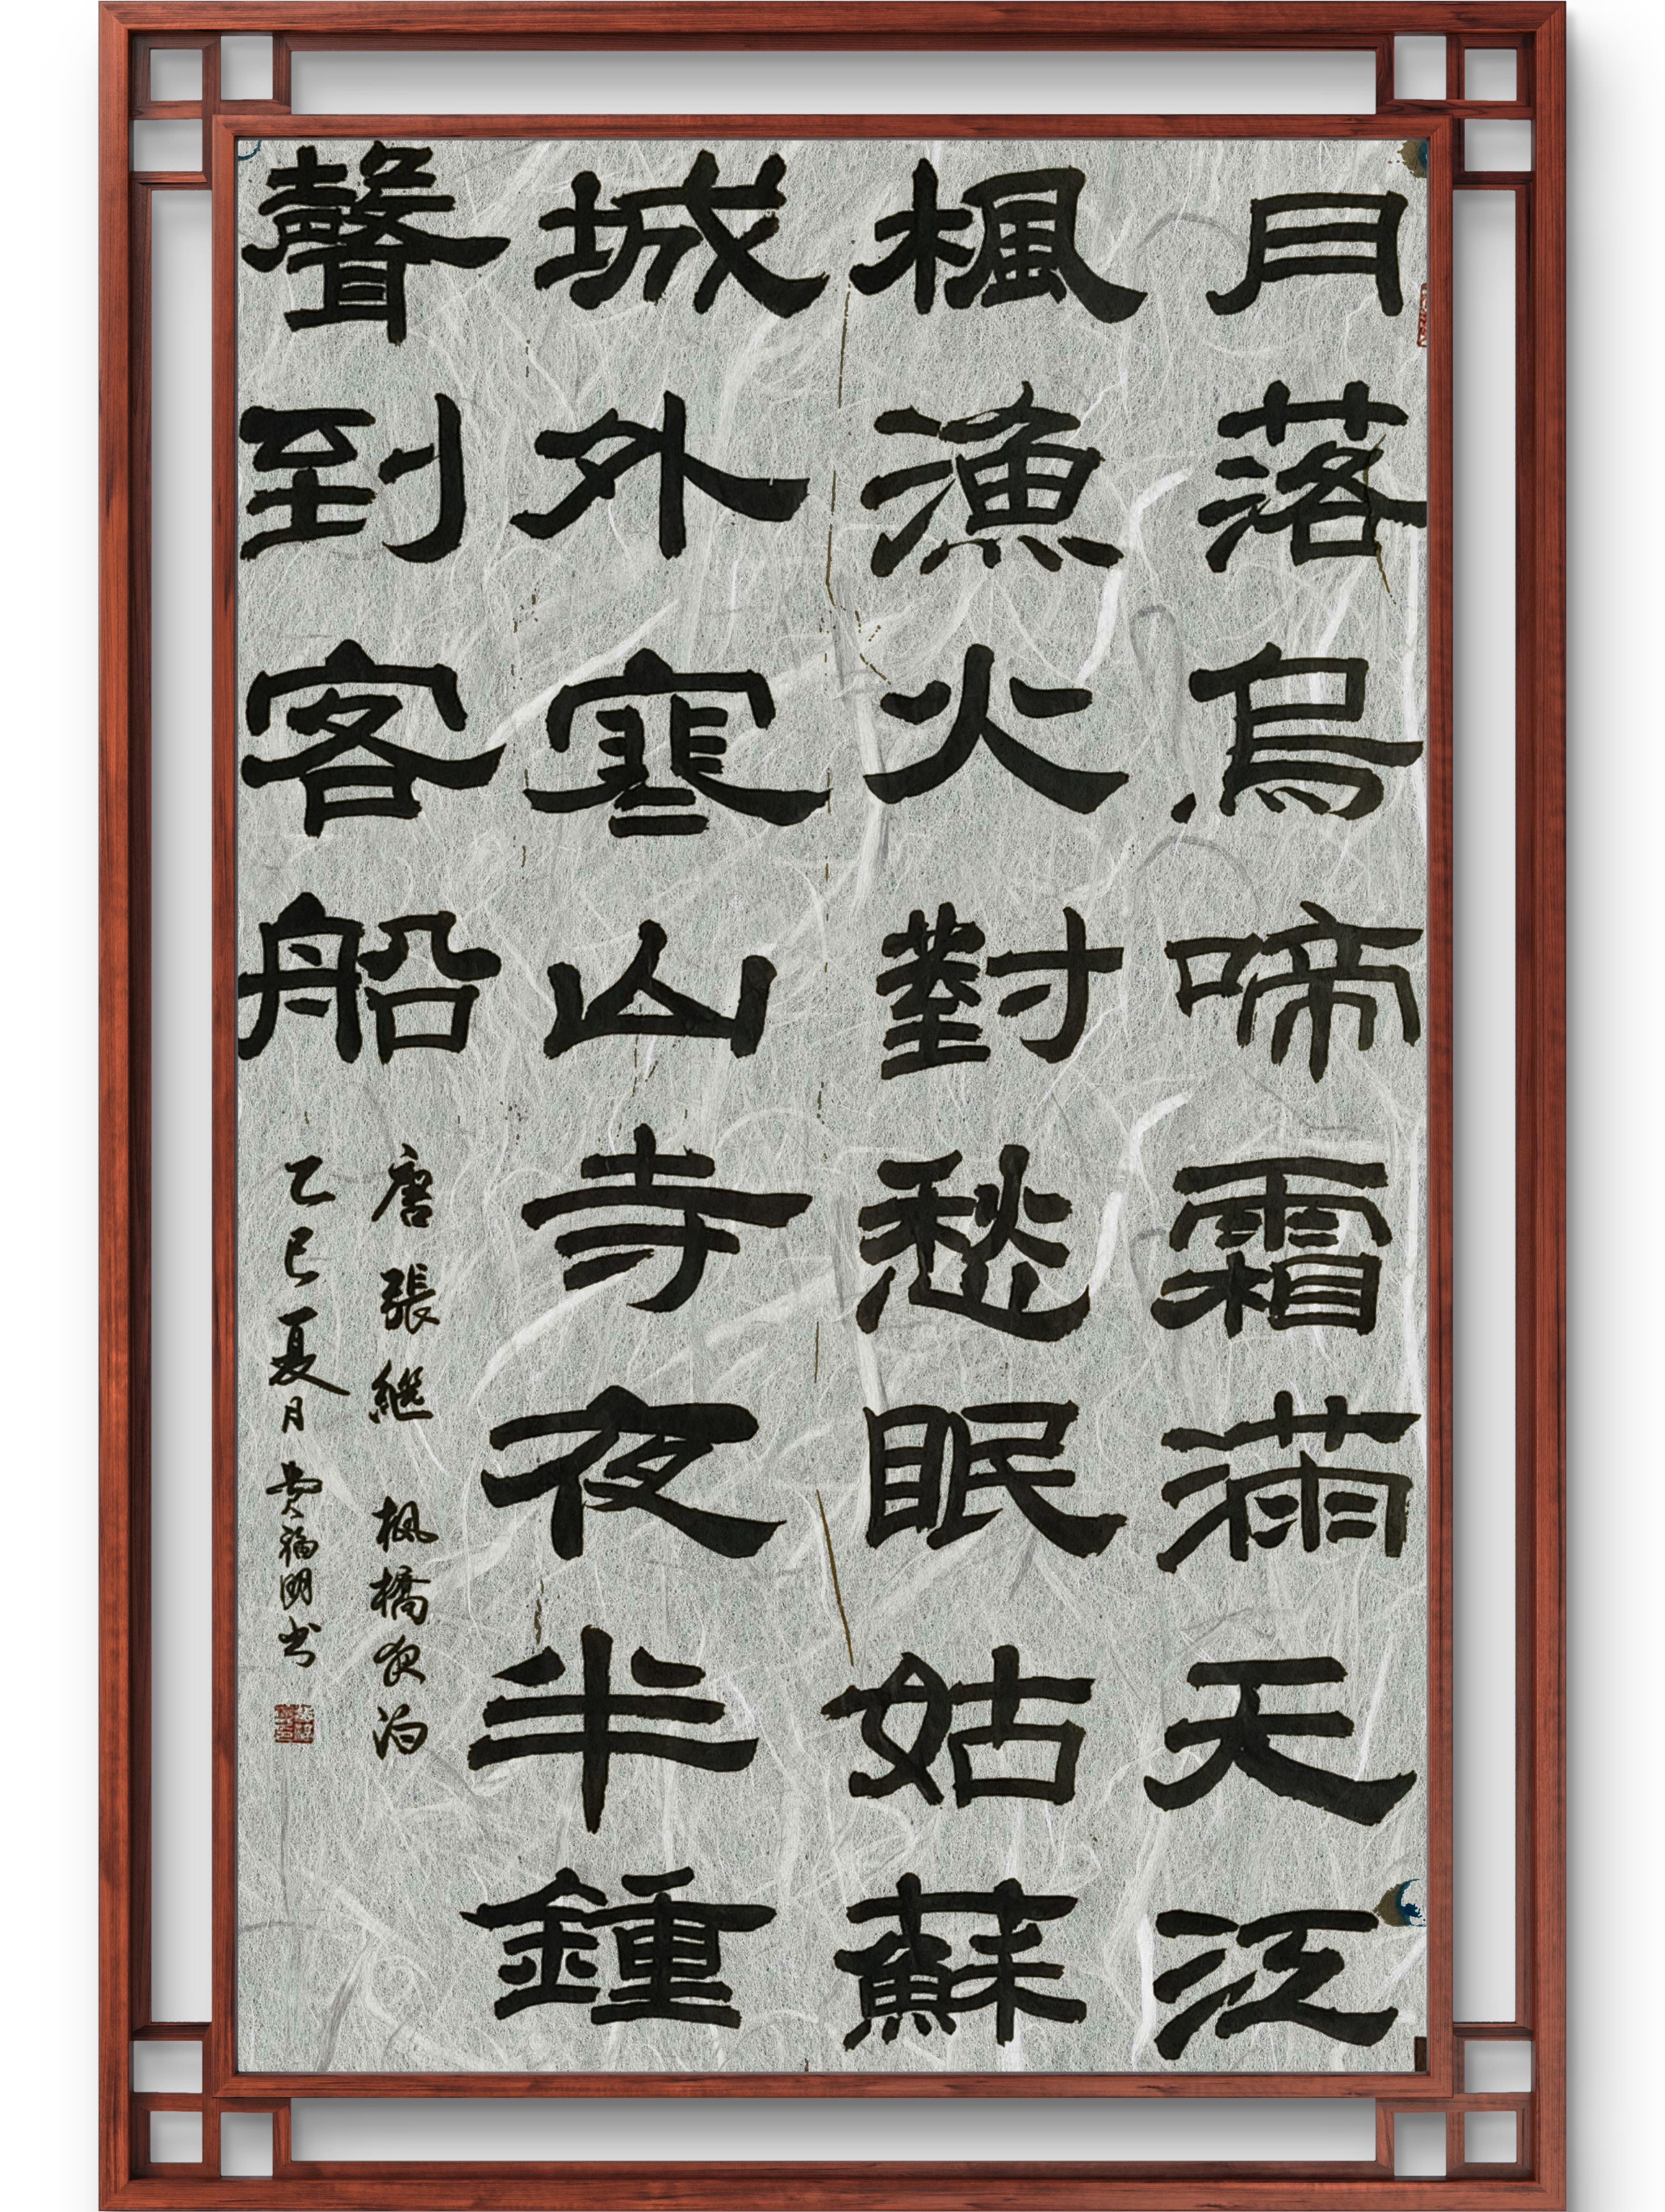 月落烏啼霜滿天江
楓漁火對愁眠姑蘇
城外寒山寺夜半鍾
聲到客船
唐張継 枫橋夜泊
乙巳夏月 福明书